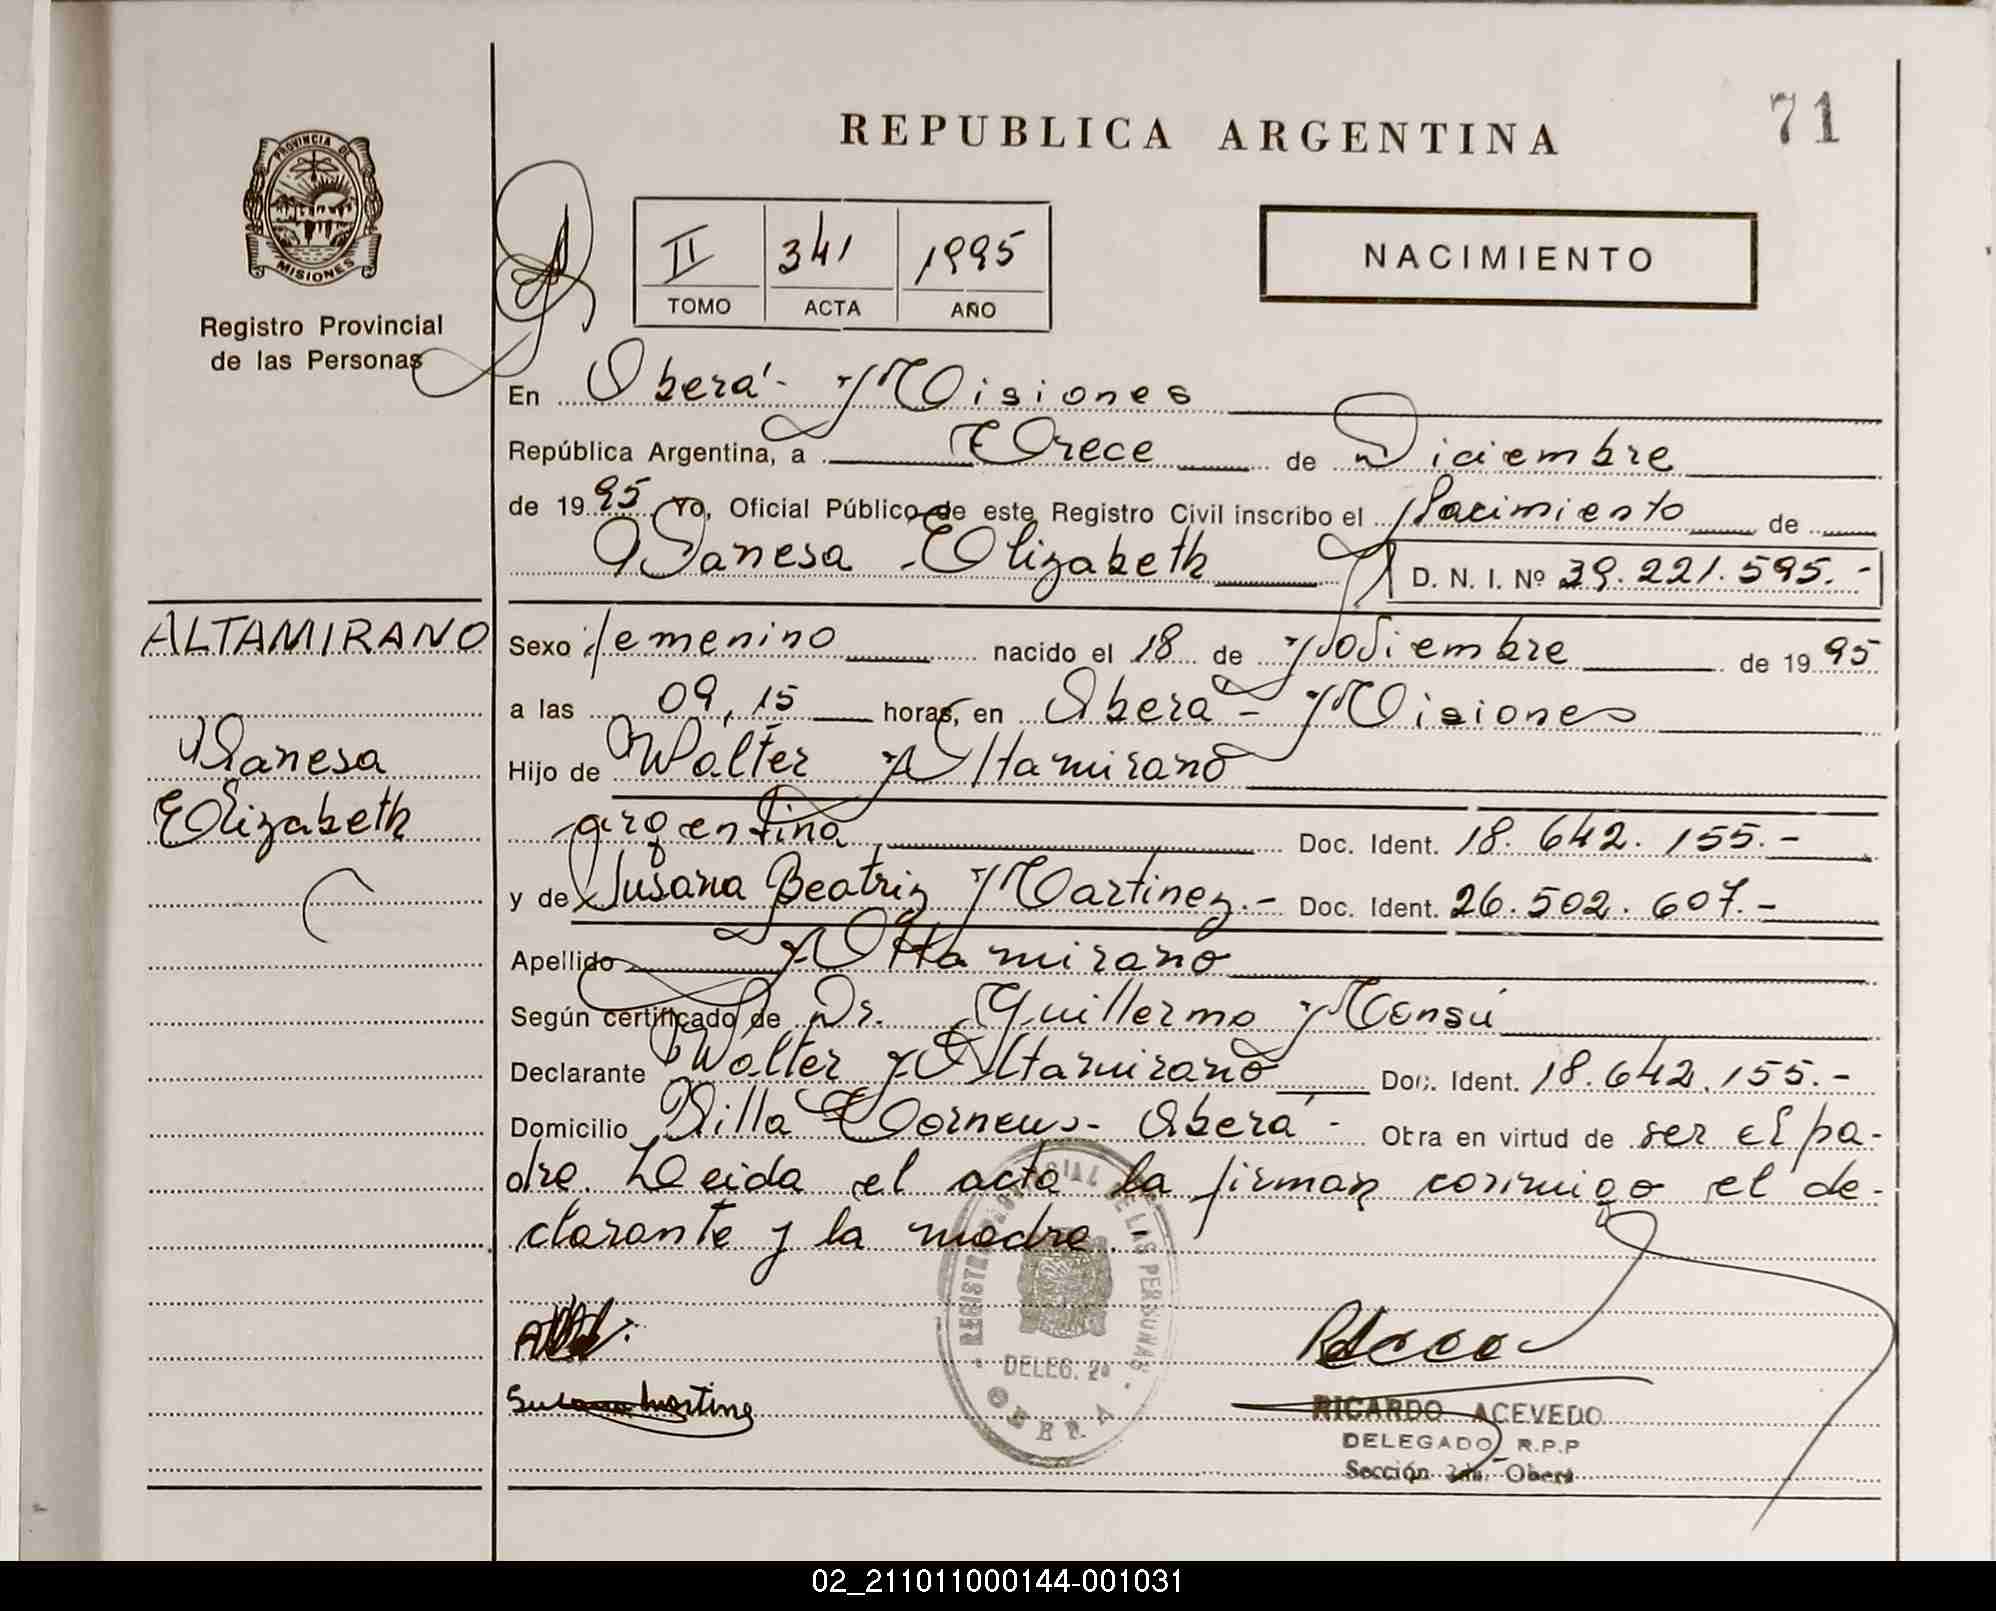 REPUBLICA ARGENTINA
71
PROVINCIA DE
MISIONES
Registro Provincial
de las Personas
II 341 1995
TOMO ACTA AÑO
NACIMIENTO
En Oberá - Misiones
República Argentina, a Trece de Diciembre
de 1995 Yo, Oficial Público de este Registro Civil inscribo el Nacimiento de
Vanesa Elizabeth D. N. I. Nº 39.221.595.-
ALTAMIRANO
Vanesa
Elizabeth
Sexo femenino nacido el 18 de Noviembre de 1995
a las 09,15 horas, en Oberá - Misiones
Hijo de Walter Altamirano
argentina Doc. Ident. 18.642.155.-
y de Susana Beatriz Martinez.- Doc. Ident. 26.502.607.-
Apellido Altamirano
Según certificado de Dr. Guillermo Mensú
Declarante Walter Altamirano Doc. Ident. 18.642.155.-
Domicilio Villa - Oberá - Obra en virtud de ser el pa-
dre. Leida el acta la firman conmigo el de-
clarante y la madre.-
REGISTRO PROVINCIAL DE LAS PERSONAS
DELEG. 2ª
OBERA
Susana Martinez
RICARDO ACEVEDO
DELEGADO R.P.P
Sección 2da. Oberá
02_211011000144-001031